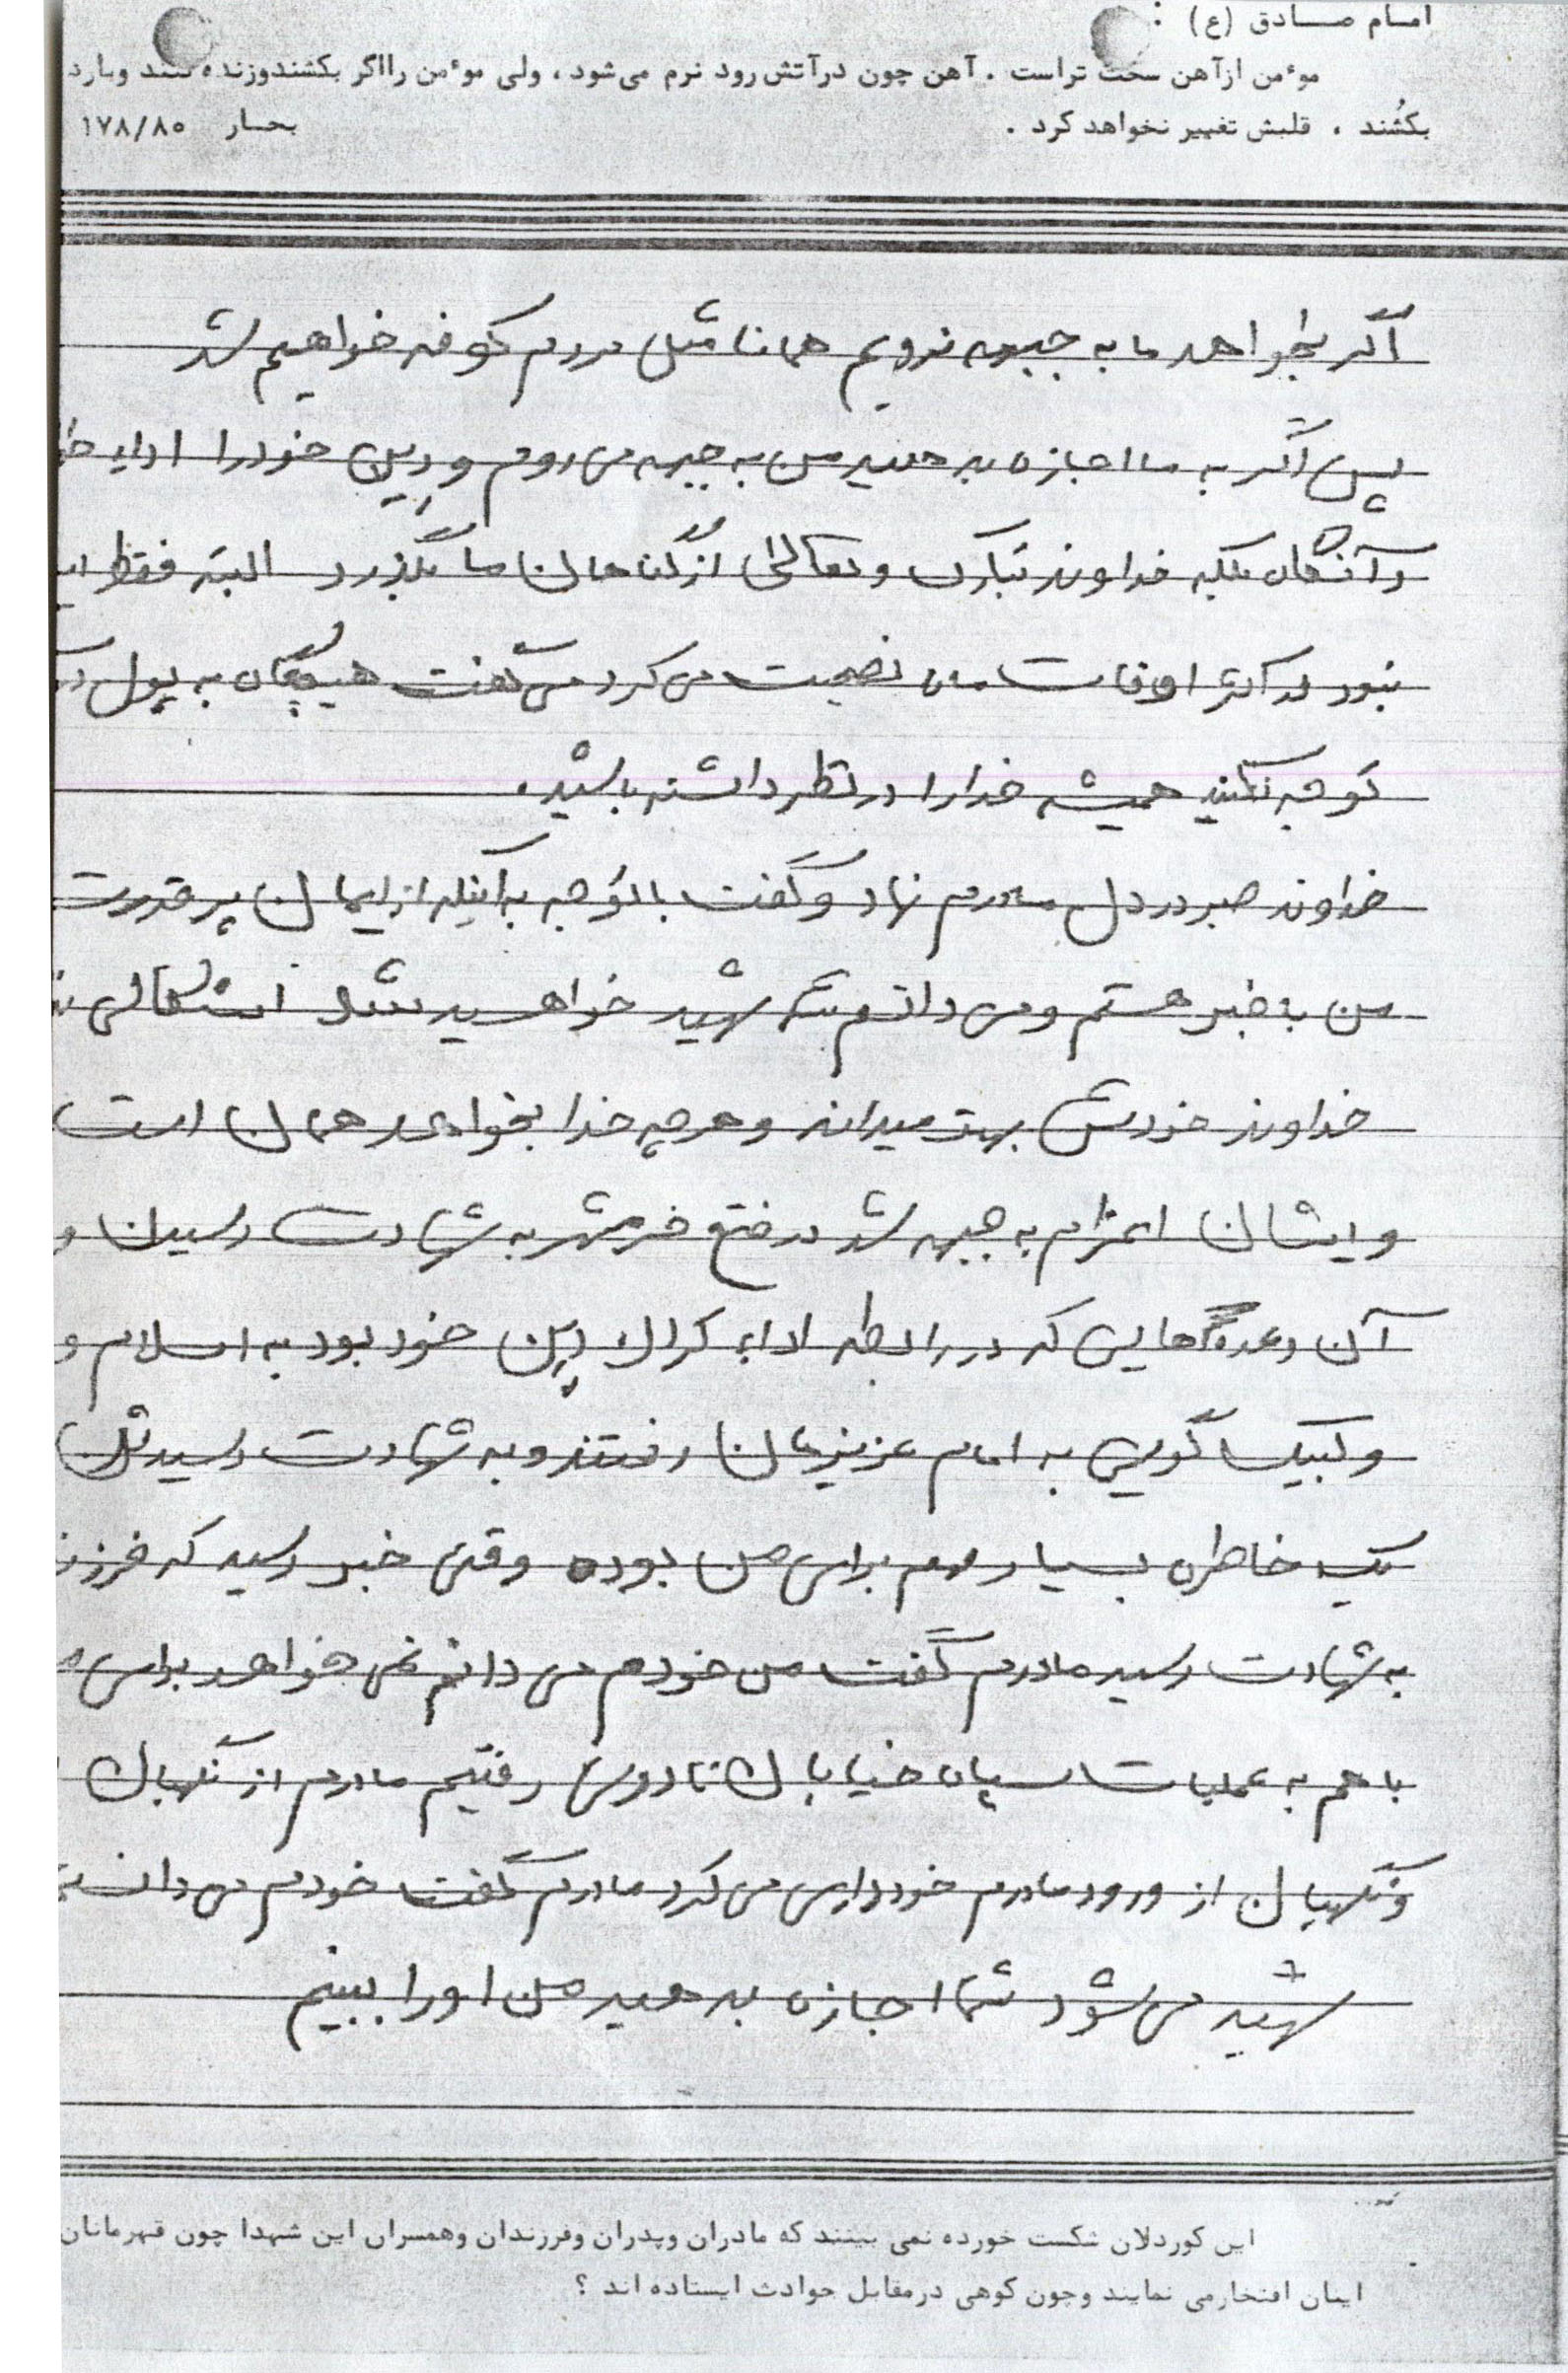 امام صادق (ع) :
موءمن ازآهن سخت تراست . آهن چون درآتش رود نرم می‌شود ، ولی موءمن رااگر بکشندوزنده کنند وبارد
بکُشند ، قلبش تغییر نخواهد کرد .
بحار ۱۷۸/۸۰
اگر بخواهد ما به جبهه نرویم همانا مثل مردم کوفه خواهیم شد
پس اگر به ما اجازه بدهید من به جبهه می روم و دین خود را اداء
خداوند تبارک و تعالی از گناهان ما بگذرد البته فقط
نبود در اکثر اوقات مان نصیحت می کرد می گفت هیچگاه به پول
توجه نکنید همیشه خدا را در نظر داشته باشید.
خداوند صبر در دل مادرم نهاد و گفت با توجه به اینکه از ایمان پر قدرت
من با خبر هستم و می دانم شهید خواهید شد اشکالی
خداوند خودش بهتر میداند و هر چه خدا بخواهد همان است
و ایشان اعزام به جبهه شد در فتح خرمشهر به شهادت رسیدن و
آن وعده هایی که در رابطه اداء کردن دین خود بود به اسلام و
و لبیک گویی به امام عزیزمان رفتند و به شهادت رسیدند
یک خاطره بسیار مهم برای من بوده وقتی خبر رسید که فرزند
به شهادت رسید مادرم گفت من خودم می دانم نمی خواهد برای
با هم به عملیات سپاه خیابان نادری رفتیم مادرم از نگهبان
و نگهبان از ورود مادرم خودداری می کرد مادرم گفت خودم می دانستم
شهید می شود شما اجازه بدهید من او را ببینم
این کوردلان شکست خورده نمی بینند که مادران وپدران وفرزندان وهمسران این شهدا چون قهرمانان
ایمان افتخارمی نمایند وچون کوهی درمقابل حوادث ایستاده اند ؟